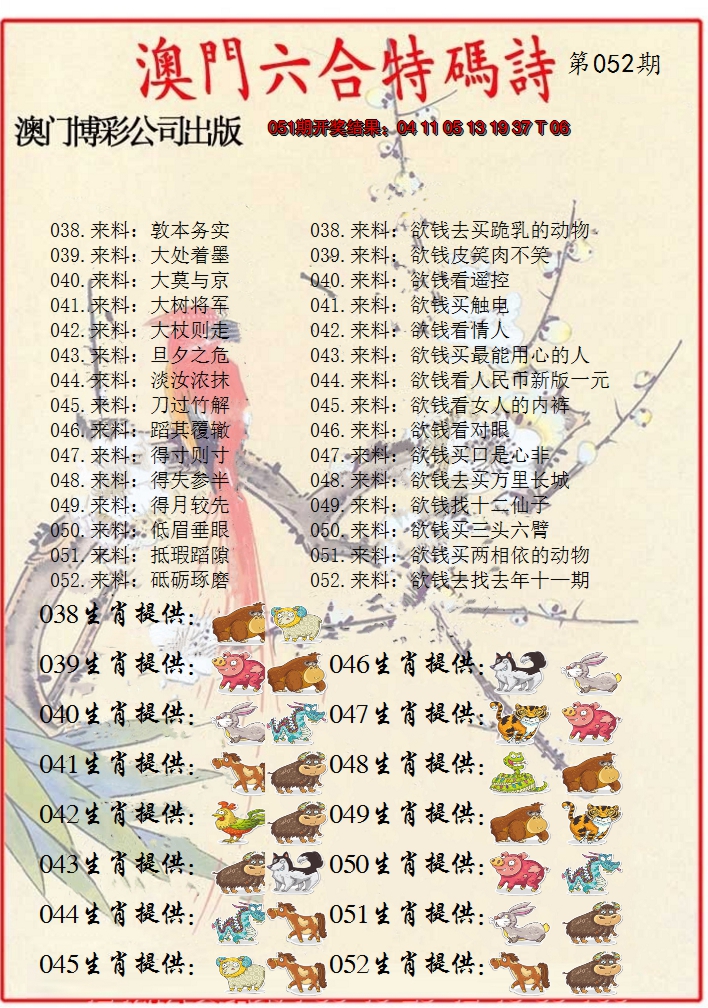 澳門六合特碼詩 第052期
澳门博彩公司出版 051期开奖结果：04 11 05 13 19 37 T 06
038.来料：敦本务实 038.来料：欲钱去买跪乳的动物
039.来料：大处着墨 039.来料：欲钱皮笑肉不笑
040.来料：大莫与京 040.来料：欲钱看遥控
041.来料：大树将军 041.来料：欲钱买触电
042.来料：大杖则走 042.来料：欲钱看情人
043.来料：旦夕之危 043.来料：欲钱买最能用心的人
044.来料：淡汝浓抹 044.来料：欲钱看人民币新版一元
045.来料：刀过竹解 045.来料：欲钱看女人的内裤
046.来料：蹈其覆辙 046.来料：欲钱看对眼
047.来料：得寸则寸 047.来料：欲钱买口是心非
048.来料：得失参半 048.来料：欲钱去买万里长城
049.来料：得月较先 049.来料：欲钱找十二仙子
050.来料：低眉垂眼 050.来料：欲钱买三头六臂
051.来料：抵瑕蹈隙 051.来料：欲钱买两相依的动物
052.来料：砥砺琢磨 052.来料：欲钱去找去年十一期
038生肖提供：
039生肖提供： 046生肖提供：
040生肖提供： 047生肖提供：
041生肖提供： 048生肖提供：
042生肖提供： 049生肖提供：
043生肖提供： 050生肖提供：
044生肖提供： 051生肖提供：
045生肖提供： 052生肖提供：